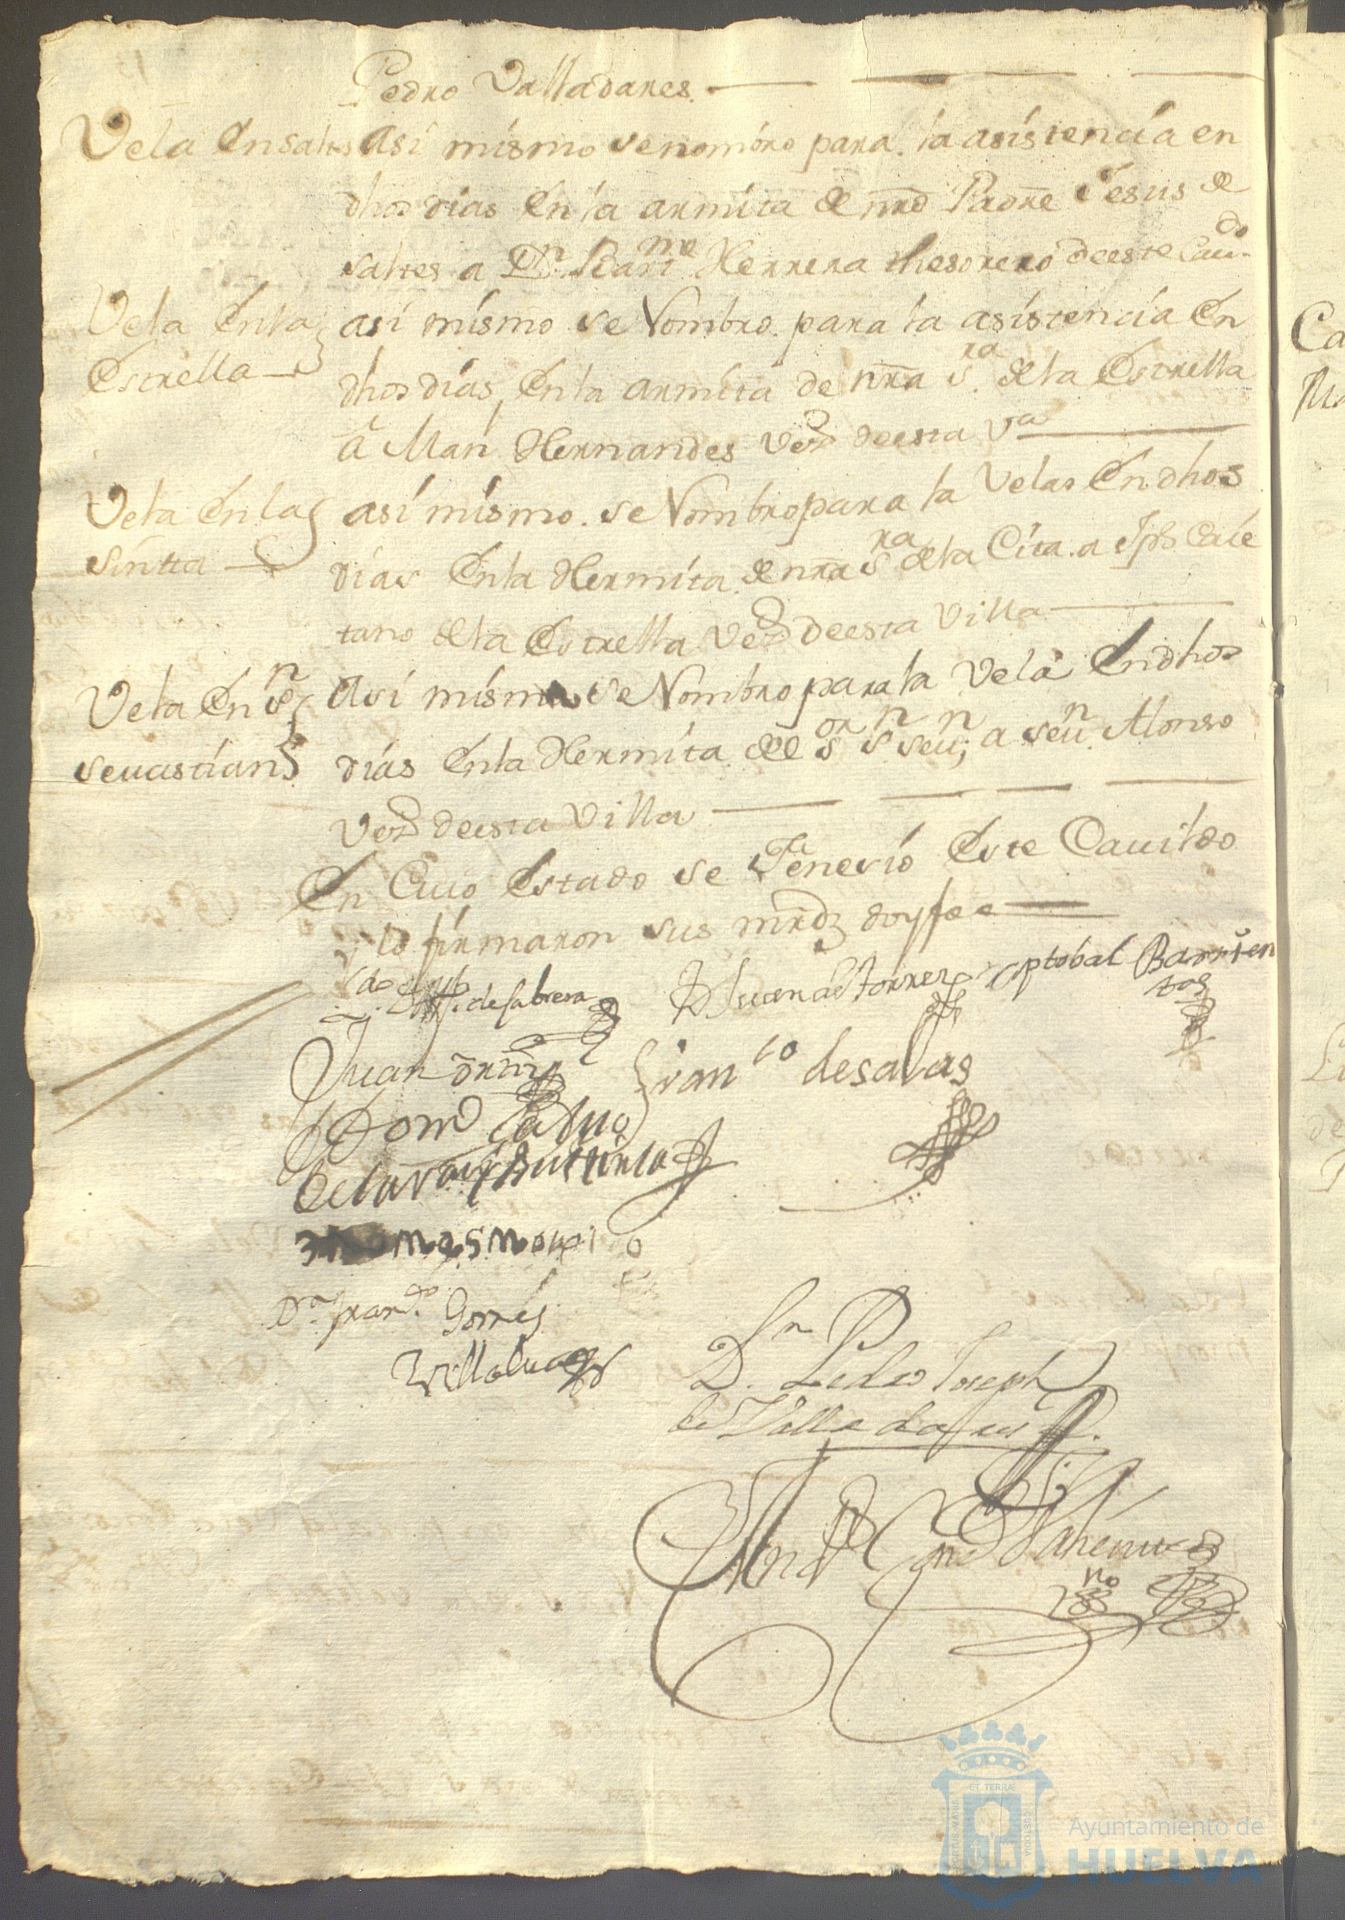 Pedro Valladares.
Vela En saltes
Asi mismo se nombro para la asistencia en
dhos dias En la armita de nro Padre Jesus de
saltes a Dn. Barme Herrera thesorero de este Caudo.
Vela En la
Estrella
asi mismo se Nombro para la asistencia En
dhos dias, En la armita de nra sra. de la Estrella
â Man Hernandes Vezo de esta Va
Vela En la
sintta
asi mismo se Nombro para la Velas En dhos
dias En la Hermita de nra sra de la Cita a Jph Caie
tano de la Estrella Vezo de esta Villa
Vela En sn
seuastian
Asi mismo se Nombro para la Vela En dhos
dias En la Hermita del sor sn seun, a seun Alonso
Vezo de esta Villa
En Cuio Estado se Fenesio Este Cauildo
y lo firmaron sus mrdz doy fee
de Cabrera
Juan de Torres
Xptobal Barrien
tos
Juan
Franco de salas
Dn. Franco. Gomes
Villalua
Dn. Pedro Joseph
de Valladares
Ayuntamiento de
HUELVA